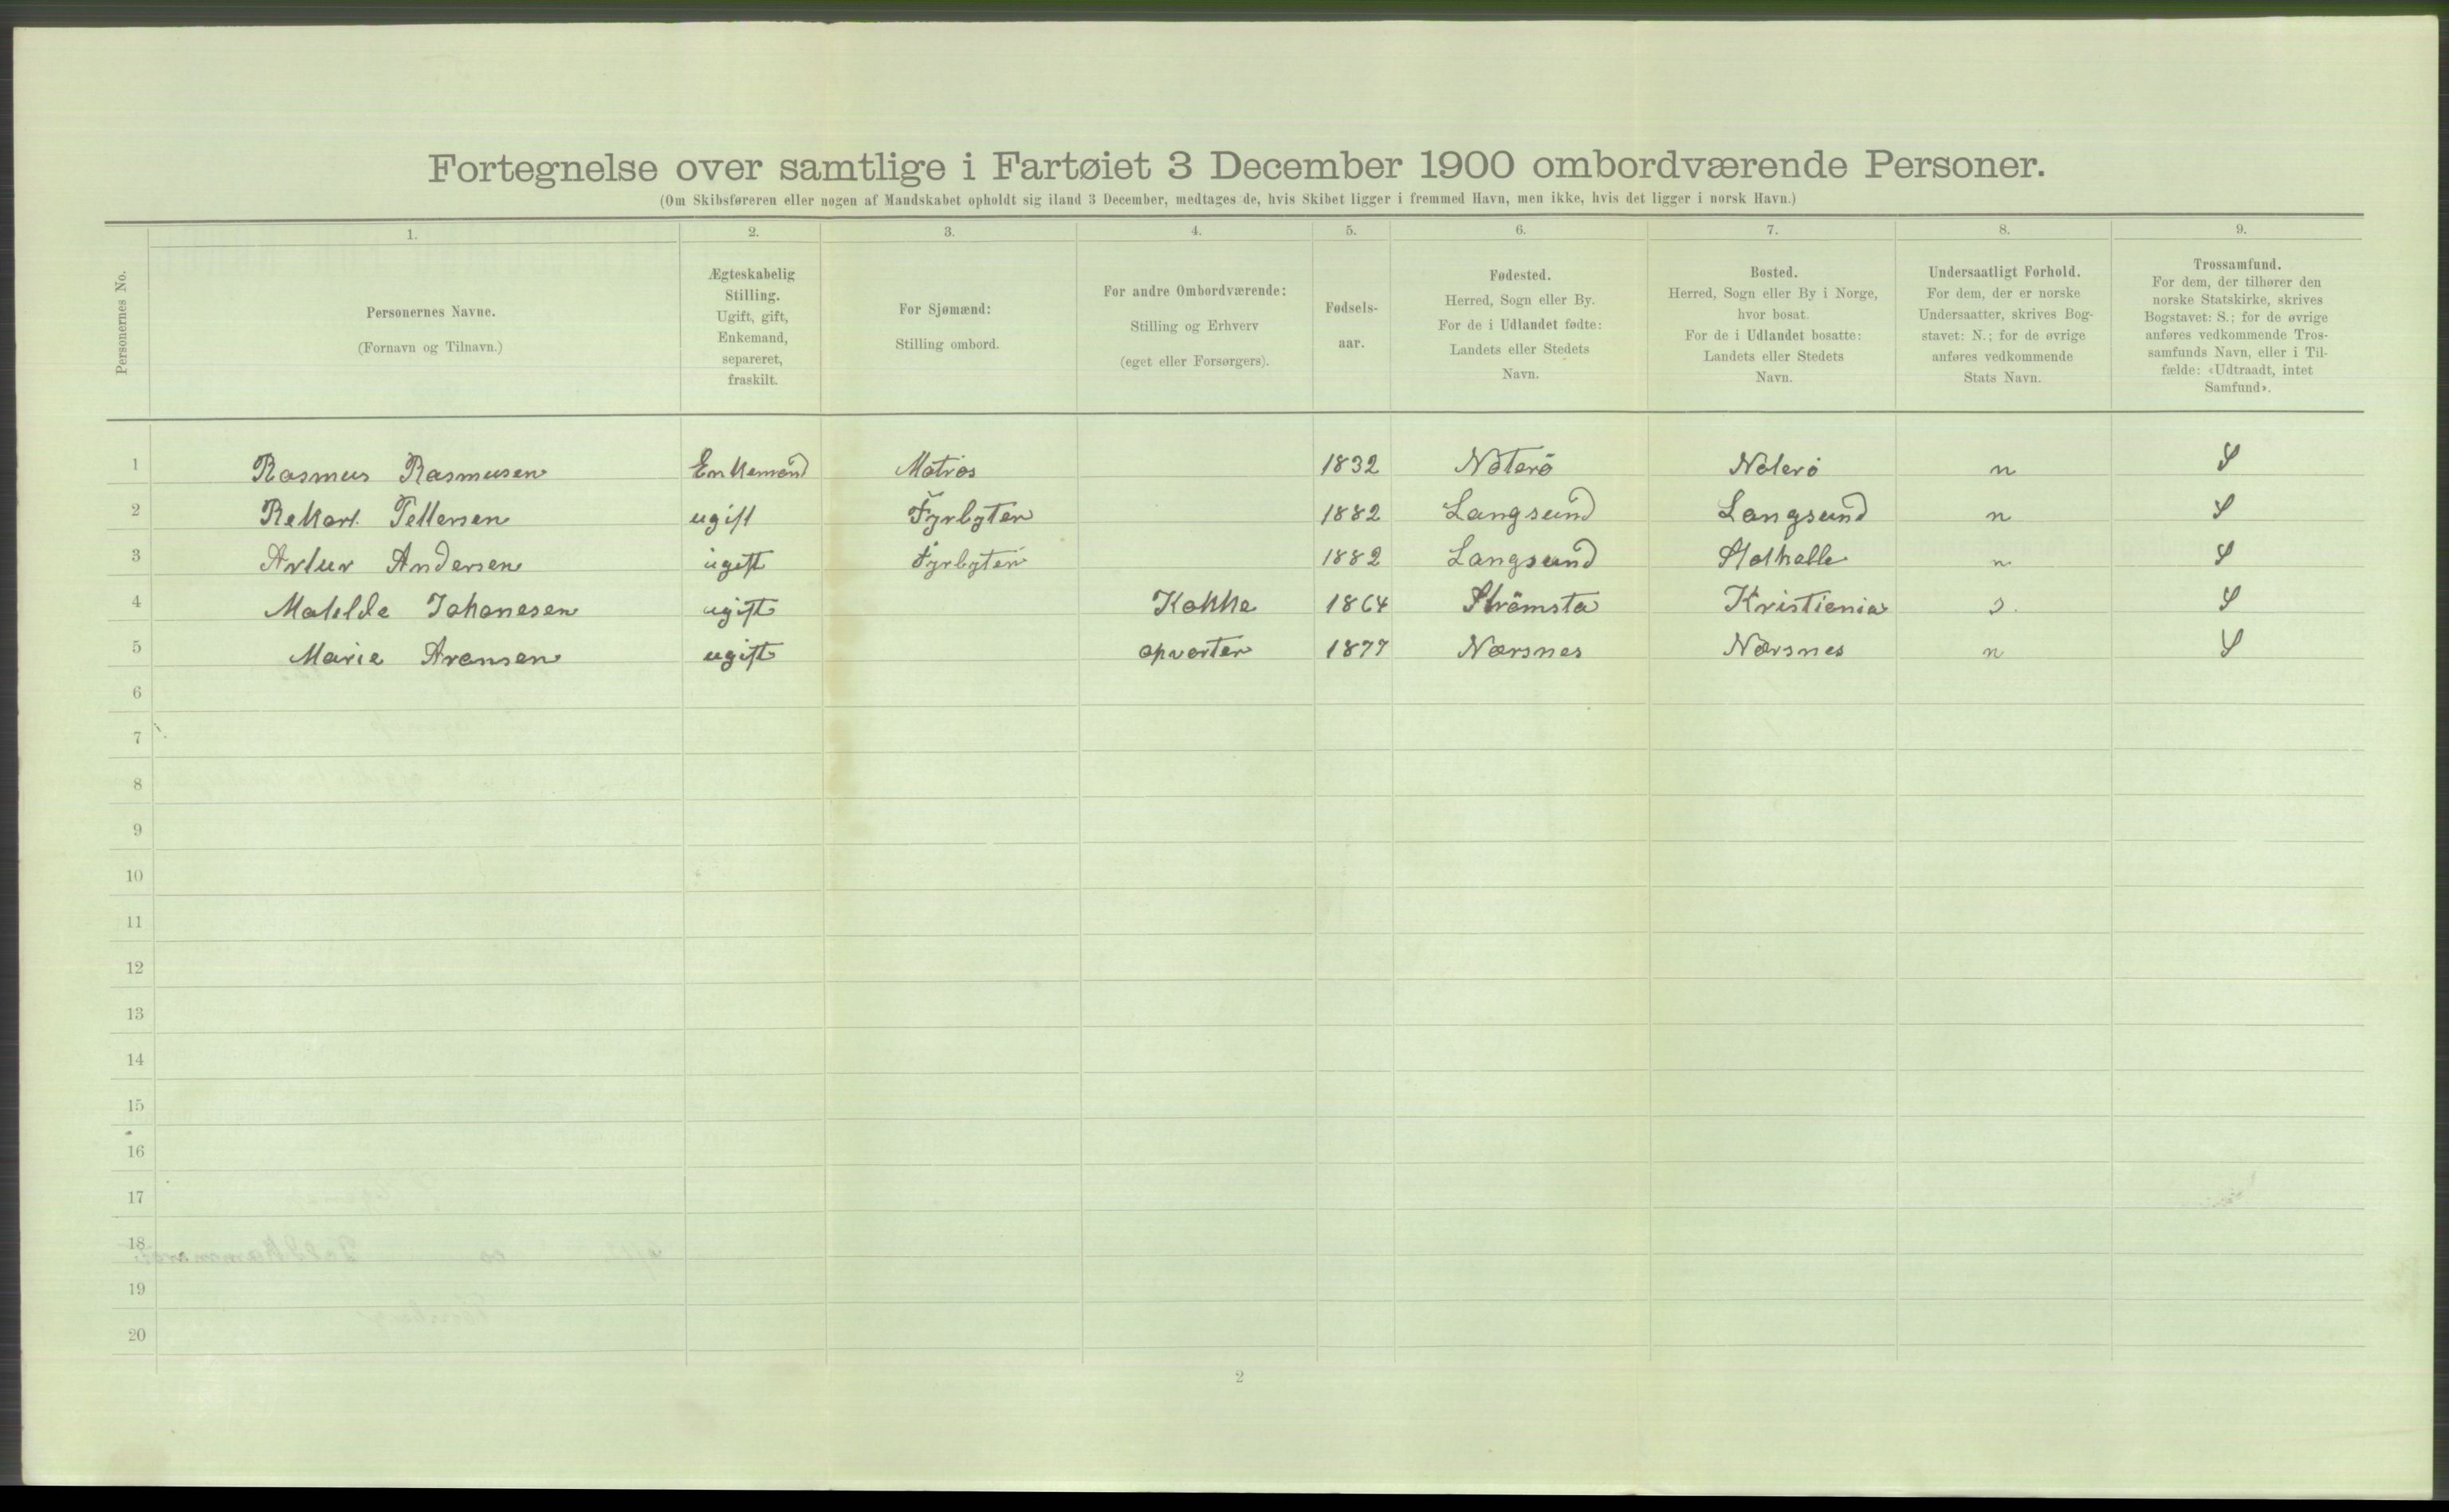 Fortegnelse over samtlige i Fartøiet 3 December 1900 ombordværende Personer.
(Om Skibsføreren eller nogen af Mandskabet opholdt sig iland 3 December, medtages de, hvis Skibet ligger i fremmed Havn, men ikke, hvis det ligger i norsk Havn.)
Personernes No.
1. 2. 3. 4. 5. 6. 7. 8. 9.
Personernes Navne.
(Fornavn og Tilnavn.)
Ægteskabelig
Stilling.
Ugift, gift,
Enkemand,
separeret,
fraskilt.
For Sjømænd:
Stilling ombord.
For andre Ombordværende:
Stilling og Erhverv
(eget eller Forsørgers).
Fødsels-
aar.
Fødested.
Herred, Sogn eller By.
For de i Udlandet fødte:
Landets eller Stedets
Navn.
Bosted.
Herred, Sogn eller By i Norge,
hvor bosat.
For de i Udlandet bosatte:
Landets eller Stedets
Navn.
Undersaatligt Forhold.
For dem, der er norske
Undersaatter, skrives Bog-
stavet: N.; for de øvrige
anføres vedkommende
Stats Navn.
Trossamfund.
For dem, der tilhører den
norske Statskirke, skrives
Bogstavet: S.; for de øvrige
anføres vedkommende Tros-
samfunds Navn, eller i Til-
fælde: «Udtraadt, intet
Samfund».
1 Rasmus Rasmusen Enkemand Matros 1832 Nöterö Nöterö n S
2 Rekart Pettersen ugift Fyrbyter 1882 Langsund Langsund n S
3 Artur Andersen ugift Fyrbyter 1882 Langsund Stathelle n S
4 Matilde Johanesen ugift Kokke 1864 Strömsta Kristiania s. S
5 Marie Aransen ugift opvarter 1877 Nærsnes Nærsnes n S
6
7
8
9
10
11
12
13
14
15
16
17
18
19
20
2